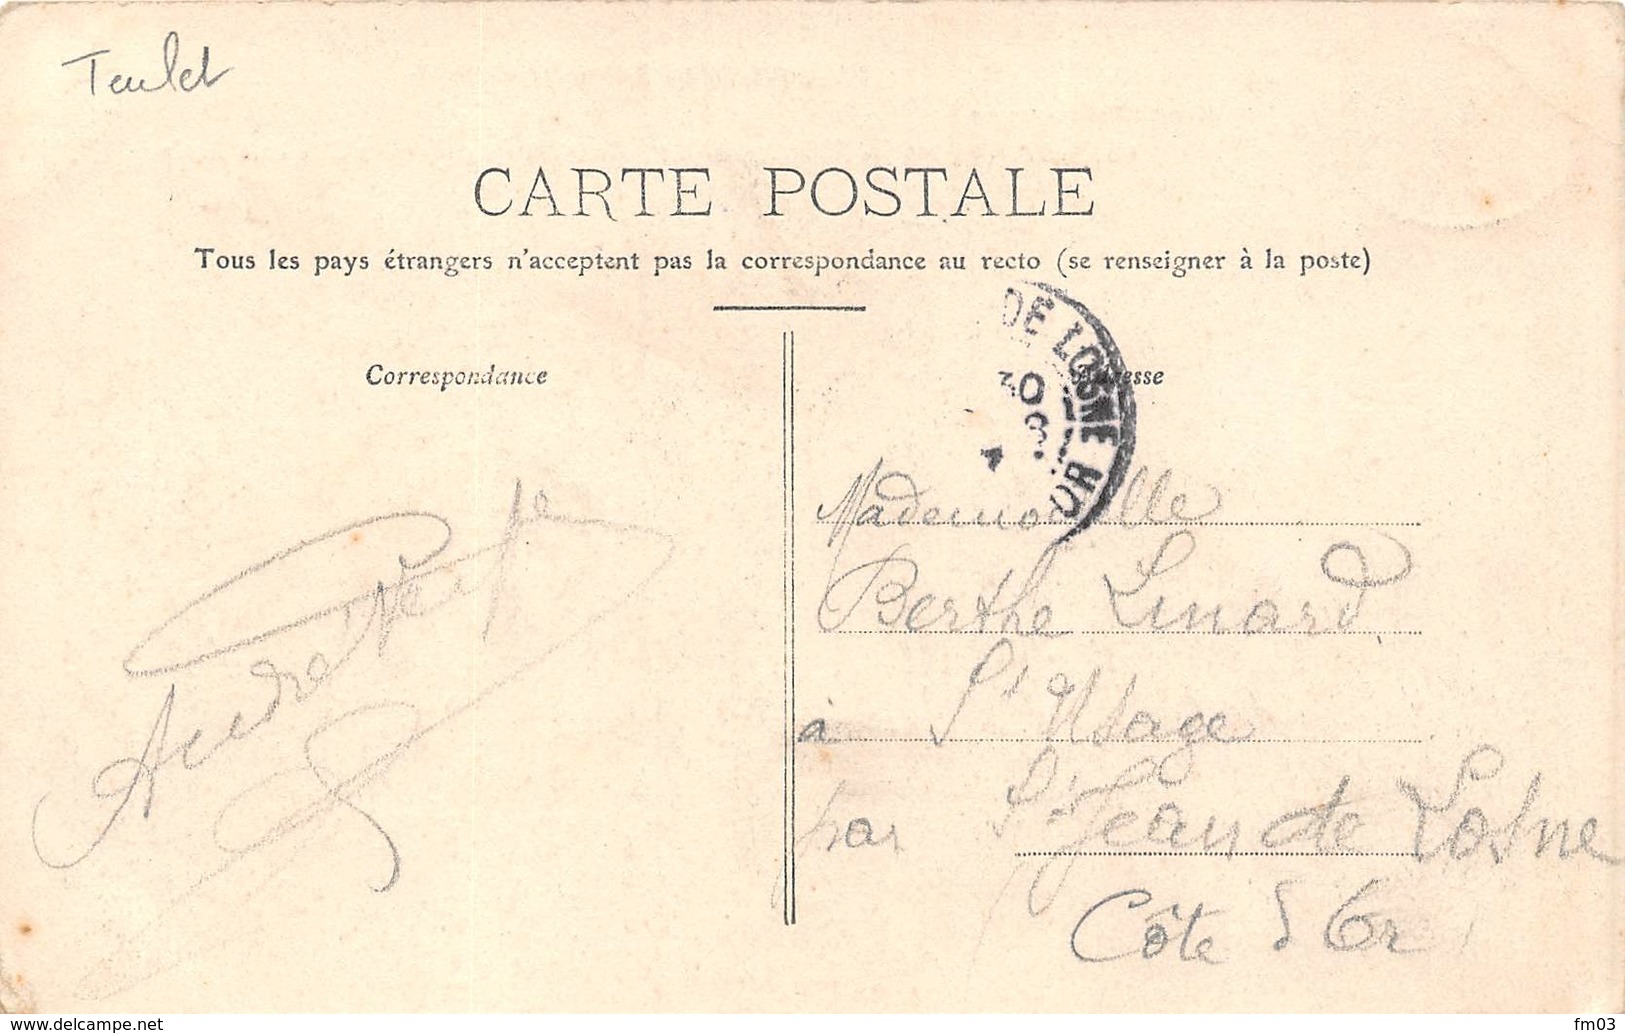 Teulet
CARTE POSTALE
Tous les pays étrangers n'acceptent pas la correspondance au recto (se renseigner à la poste)
Correspondance
Adresse
DE LOSNE
30
8
Mademoiselle
Berthe Linard
à St Usage
par St Jean de Losne
Côte d'Or
André
www.delcampe.net
fm03